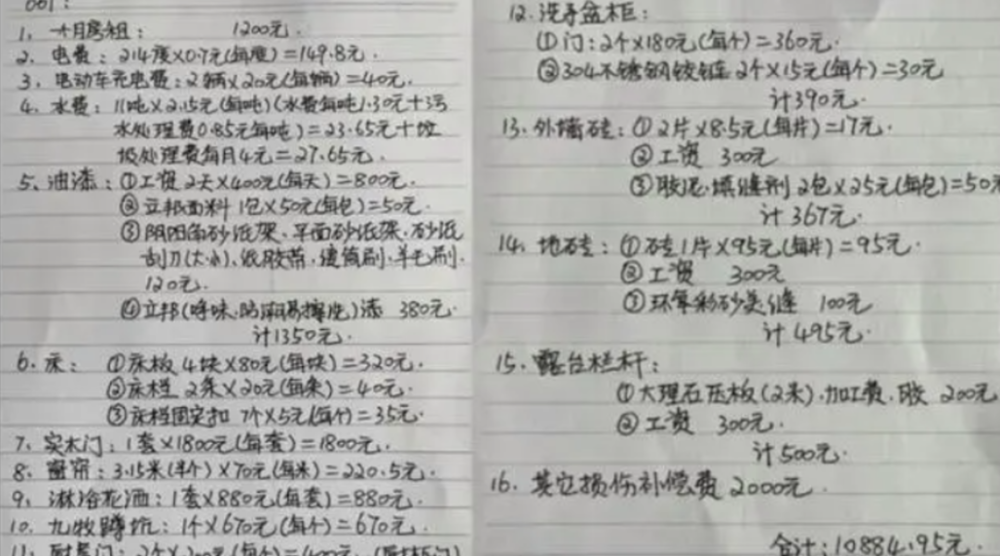 001:
1、一个月房租: 1200元.
2、电费: 214度×0.7元(每度)=149.8元.
3、电动车充电费:2辆×20元(每辆)=40元.
4、水费: 11吨×2.15元(每吨)(水费每吨1.30元+污
水处理费0.85元每吨)=23.65元+垃
圾处理费每月4元=27.65元.
5、油漆:①工资 2天×400元(每天)=800元.
②立邦面料 1包×50元(每包)=50元.
③阴阳角砂纸架、平面砂纸架、砂纸
刮刀(大小)、纸胶带、滚筒刷、羊毛刷.
120元.
④立邦(呼味、防霉易擦洗)漆 380元.
计1350元.
6、床: ①床板 4块×80元(每块)=320元.
②床档 2条×20元(每条)=40元.
③床档固定扣 7个×5元(每个)=35元.
7、实木门:1套×1800元(每套)=1800元.
8、窗帘:3.15米(半个)×70元(每米)=220.5元.
9、淋浴花洒:1套×880元(每套)=880元.
10、九牧蹲坑:1个×670元(每个)=670元.
11、 门:2个×200元(每个)=400元.
12.洗手盆柜:
①门:2个×180元(每个)=360元
②304不锈钢铰链 2个×15元(每个)=30元
计390元.
13.外墙砖:①2片×8.5元(每片)=17元.
②工资 300元
③胶泥.填缝剂 2包×25元(每包)=50元
计367元.
14.地砖:①砖1片×95元(每片)=95元.
②工资 300元
③环氧彩砂美缝 100元
计495元.
15.露台栏杆:
①大理石压板(2米).加工费.胶 200元
②工资 300元.
计500元.
16.其它损伤补偿费 2000元.
合计:10884.95元.